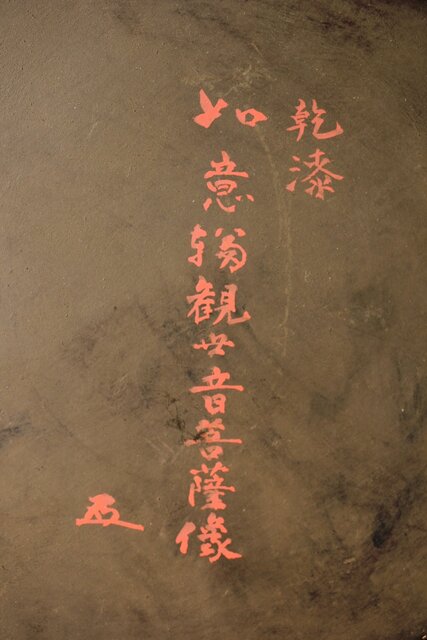 乾漆
如意輪観世音菩薩像